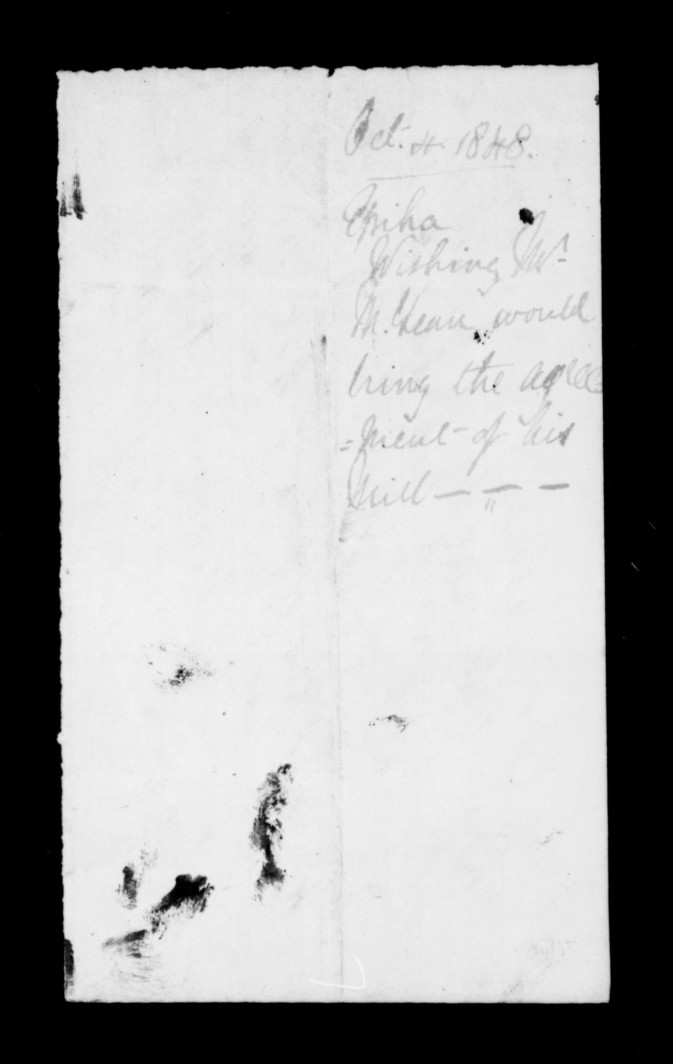 Oct. 4. 1848.
Epiha
Wishing Mr
McLean would
bring the agree
=ment of his
Mill — „ —